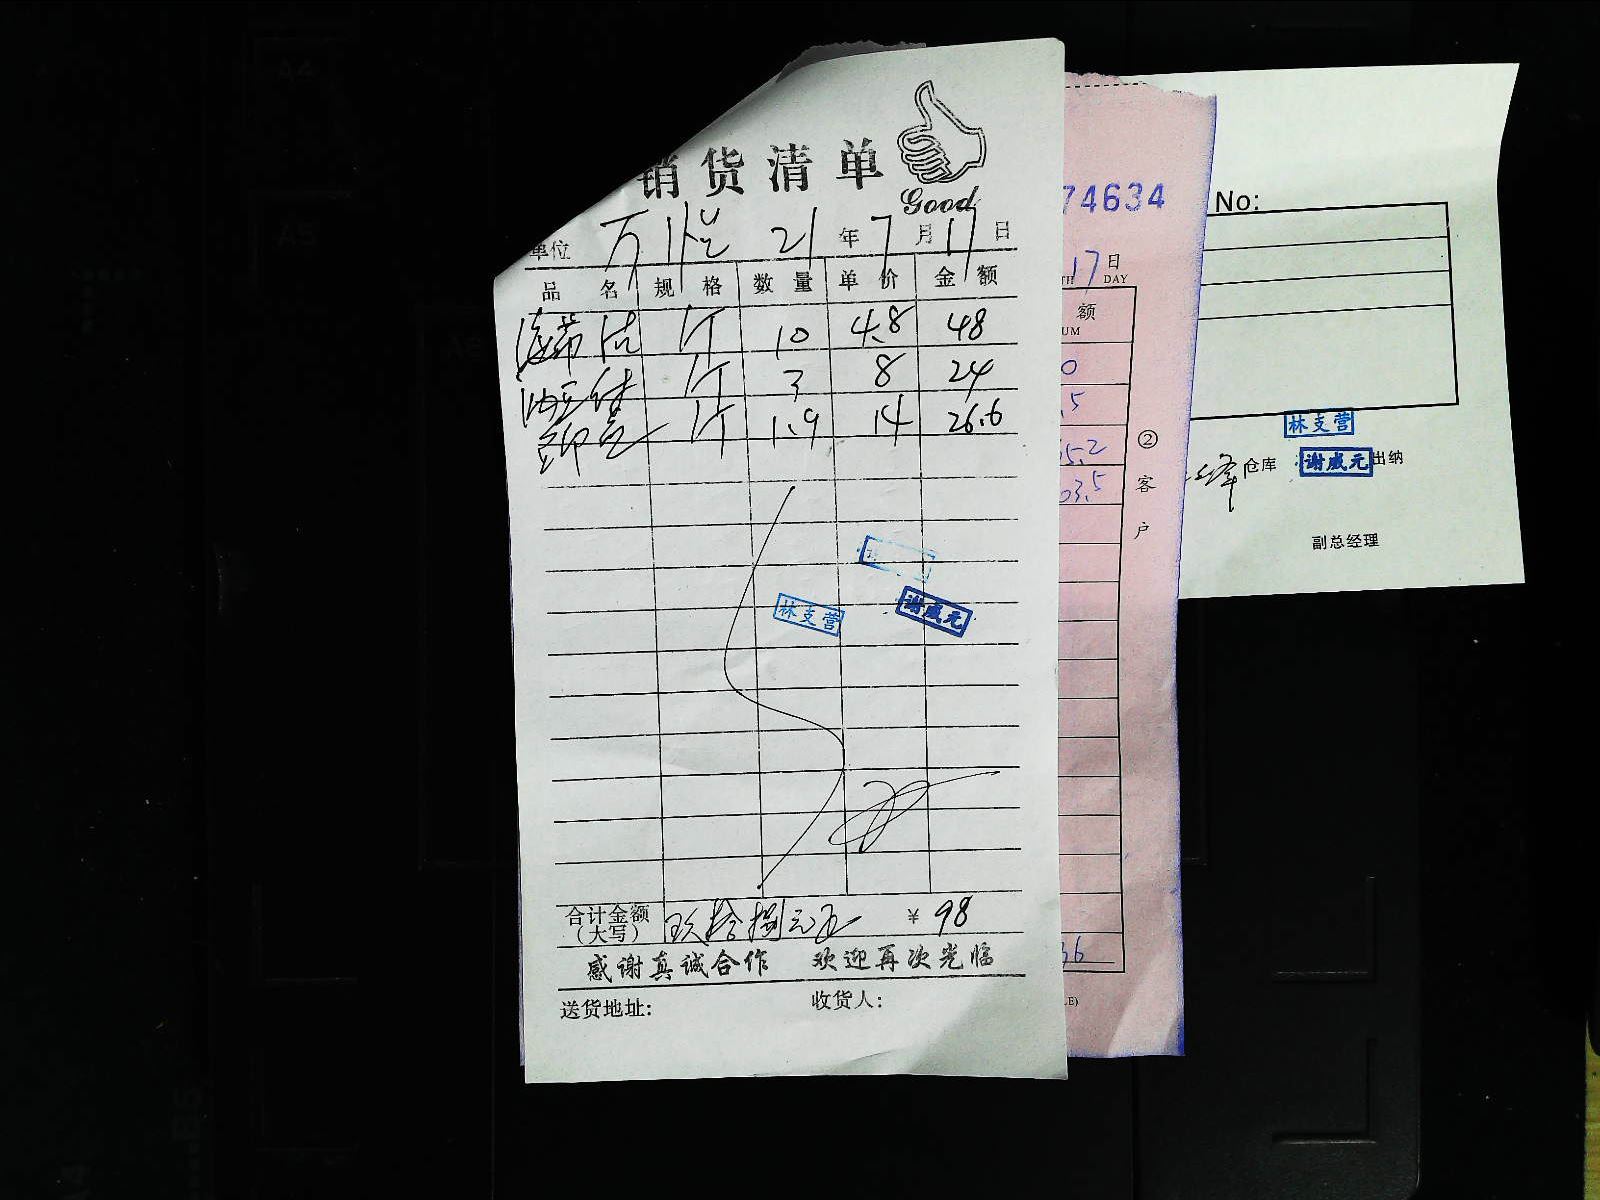 销货清单
Good
单位 万 21年7月17日
品名 规格 数量 单价 金额
个 10 4.8 48
个 3 8 24
个 1.9 14 26.6
林支营
谢威元
合计金额（大写） 玖拾捌元 ¥ 98
感谢真诚合作 欢迎再次光临
送货地址: 收货人:
74634
17日
DAY
额
UM
0
.5
5.2
03.5
②客户
36
LE)
No:
林支营
峰 仓库 谢威元 出纳
副总经理